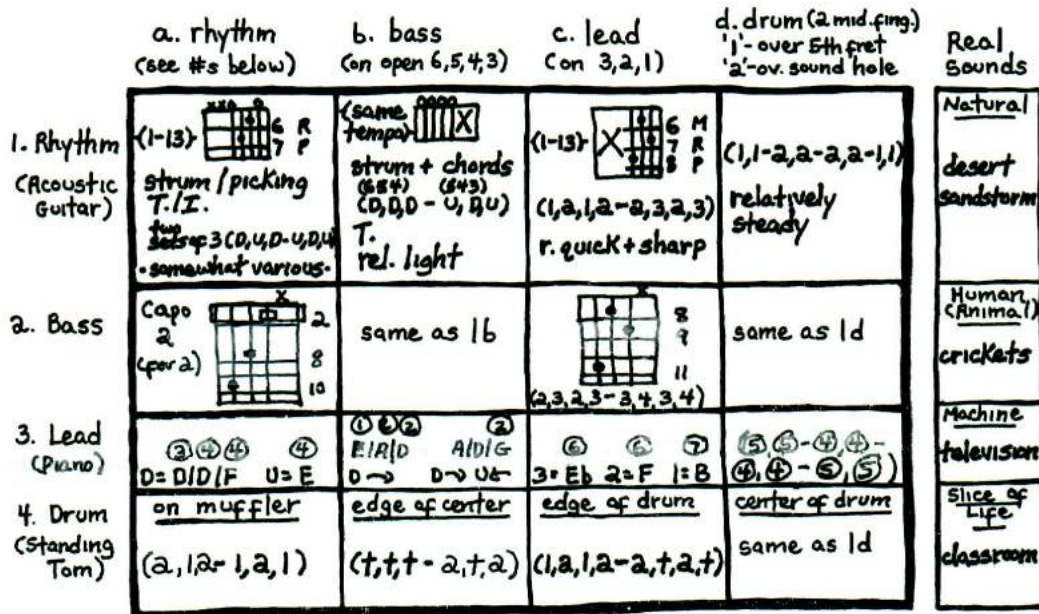 a. rhythm
(see #s below)
b. bass
(on open 6,5,4,3)
c. lead
(on 3,2,1)
d. drum (2 mid. fing.)
'1'- over 5th fret
'2'-ov. sound hole
Real
Sounds
1. Rhythm
(Acoustic
Guitar)
xxo o
(1-13)
6 R
7 P
strum/picking
T./I.
two
sets of 3 (D,U,D-U,D,U)
- somewhat various -
oooo
(same
tempo)
X
strum + chords
(654) (543)
(D,D,D - U,D,U)
T.
rel. light
(1-13)
X
6 M
7 R
8 P
(1,2,1,2-2,3,2,3)
r. quick + sharp
(1,1-2,2-2,2-1,1)
relatively
steady
Natural
desert
sandstorm
2. Bass
Capo
2
(for 2)
x
2
8
10
same as 1b
x
8
9
11
(2,3,2,3-3,4,3,4)
same as 1d
Human,
(Animal)
crickets
3. Lead
(Piano)
3 4 4 4
D= D/D/F U= E
E/A/D A/D/G
D→ D→ U←
6 6 7
3=Eb 2=F 1=B
5,5-4,4-
4,4-5,5)
Machine
television
4. Drum
(Standing
Tom)
on muffler
(2,1,2-1,2,1)
edge of center
(t,t,t - 2,t,2)
edge of drum
(1,2,1,2-2,t,2,t)
center of drum
same as 1d
Slice of
Life
classroom